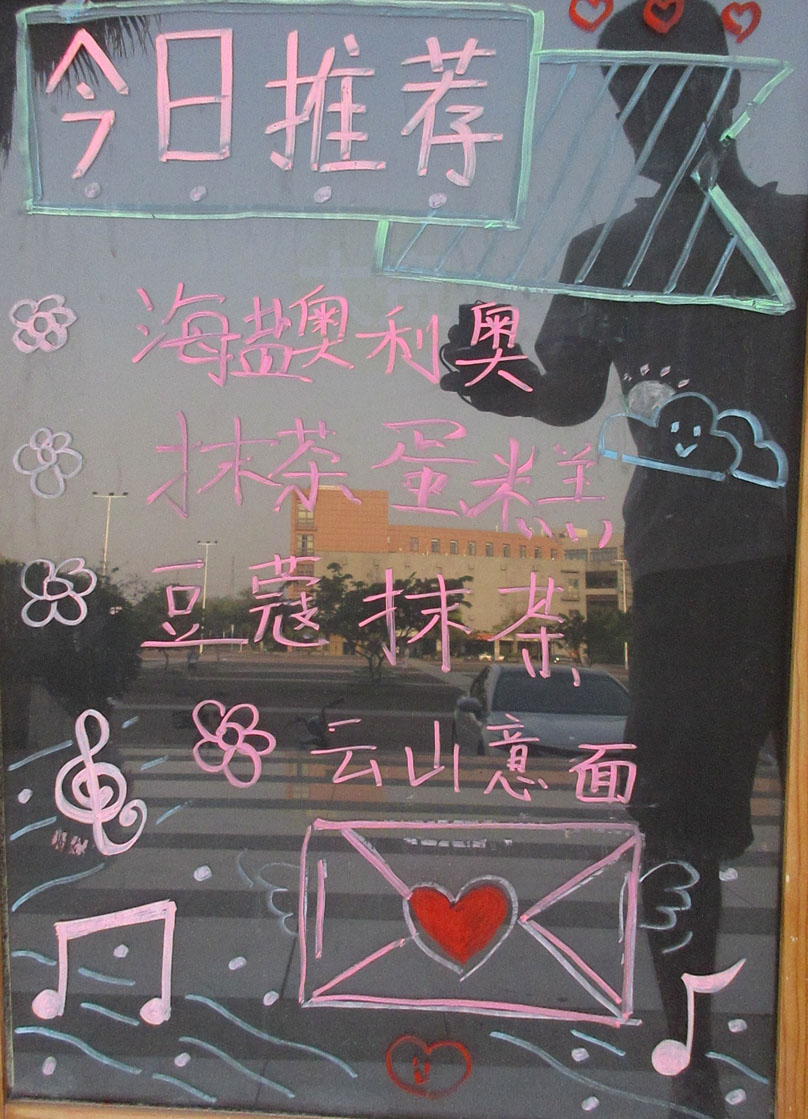 今日推荐
海盐奥利奥
抹茶蛋糕
豆蔻抹茶
云山意面